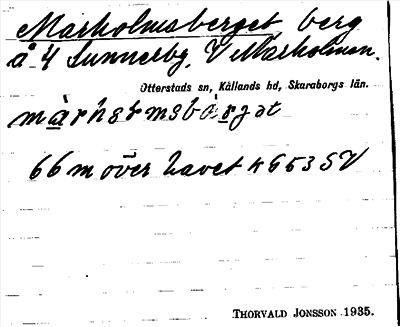 Marholmsberget berg
å 4 Sunnerby, V Marholmen.
Otterstads sn, Kållands hd, Skaraborgs län.
66 m över havet
THORVALD JONSSON 1935.